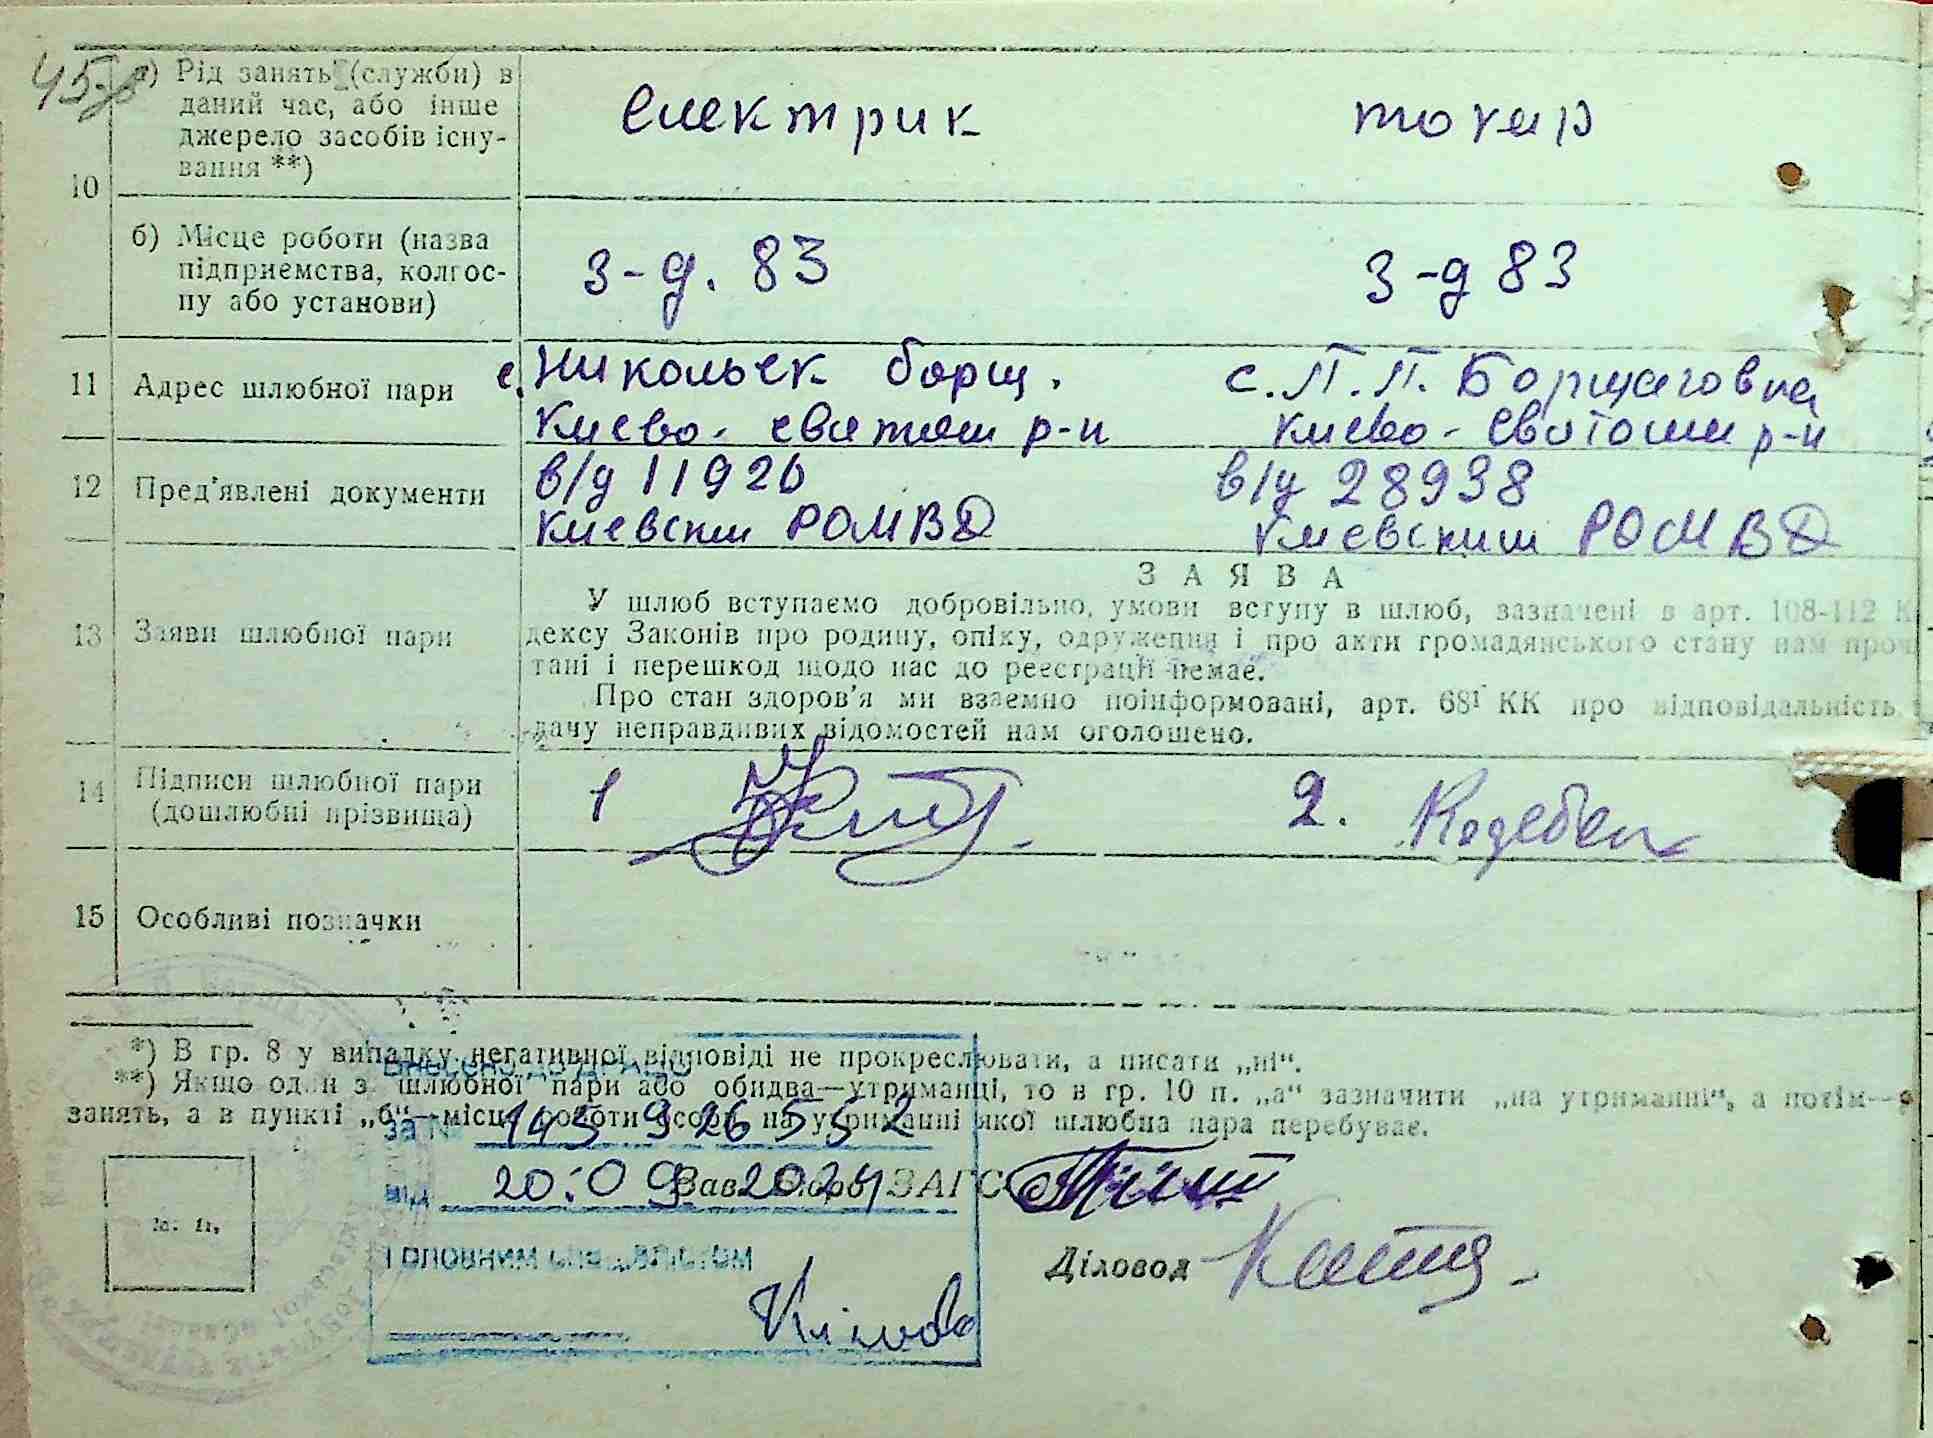 45
а) Рід занять (служби) в
даний час, або інше
джерело засобів існу-
вання **)
електрик
токар
10
б) Місце роботи (назва
підприємства, колгос-
пу або установи)
з-д. 83
з-д 83
11
Адрес шлюбної пари
с. Никольск борщ.
Киево-святош р-н
с. П. П. Борщаговка
Киево-Святош р-н
12
Пред'явлені документи
в/д 11926
Киевским РОМВД
в/у 28938
Киевским РОМВД
13
Заяви шлюбної пари
ЗАЯВА
У шлюб вступаємо добровільно, умови вступу в шлюб, зазначені в арт. 108-112 К
дексу Законів про родину, опіку, одруження і про акти громадянського стану нам проч
тані і перешкод щодо нас до реєстрації немає.
Про стан здоров'я ми взаємно поінформовані, арт. 68¹ КК про відповідальність
дачу неправдивих відомостей нам оголошено.
14
Підписи шлюбної пари
(дошлюбні прізвища)
1
2.
15
Особливі позначки
*) В гр. 8 у випадку негативної відповіді не прокреслювати, а писати „ні“.
**) Якщо один з шлюбної пари або обидва—утриманці, то в гр. 10 п. „а“ зазначити „на утриманні“, а потім—р
занять, а в пункті „б“—місце роботи особи на утриманні якої шлюбна пара перебуває.
Внесено до ДРАЦС
за №
від 20.09.2024
Зав. Бюро ЗАГС
Головним спеціалістом
М. П.
Діловод